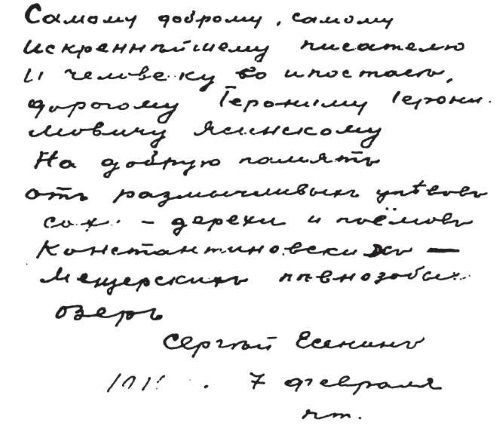 Самому доброму, самому
искреннѣйшему писателю
и человеку во ипостаси,
дорогому Герониму Герони-
мовичу Ясинскому
На добрую память
отъ размычливыхъ упѣвовъ
сохи - дерехи и поёмовъ
Константиновскихъ —
Мещерскихъ певнозобых
озеръ
Сергѣй Есенинъ
7 февраля
пт.